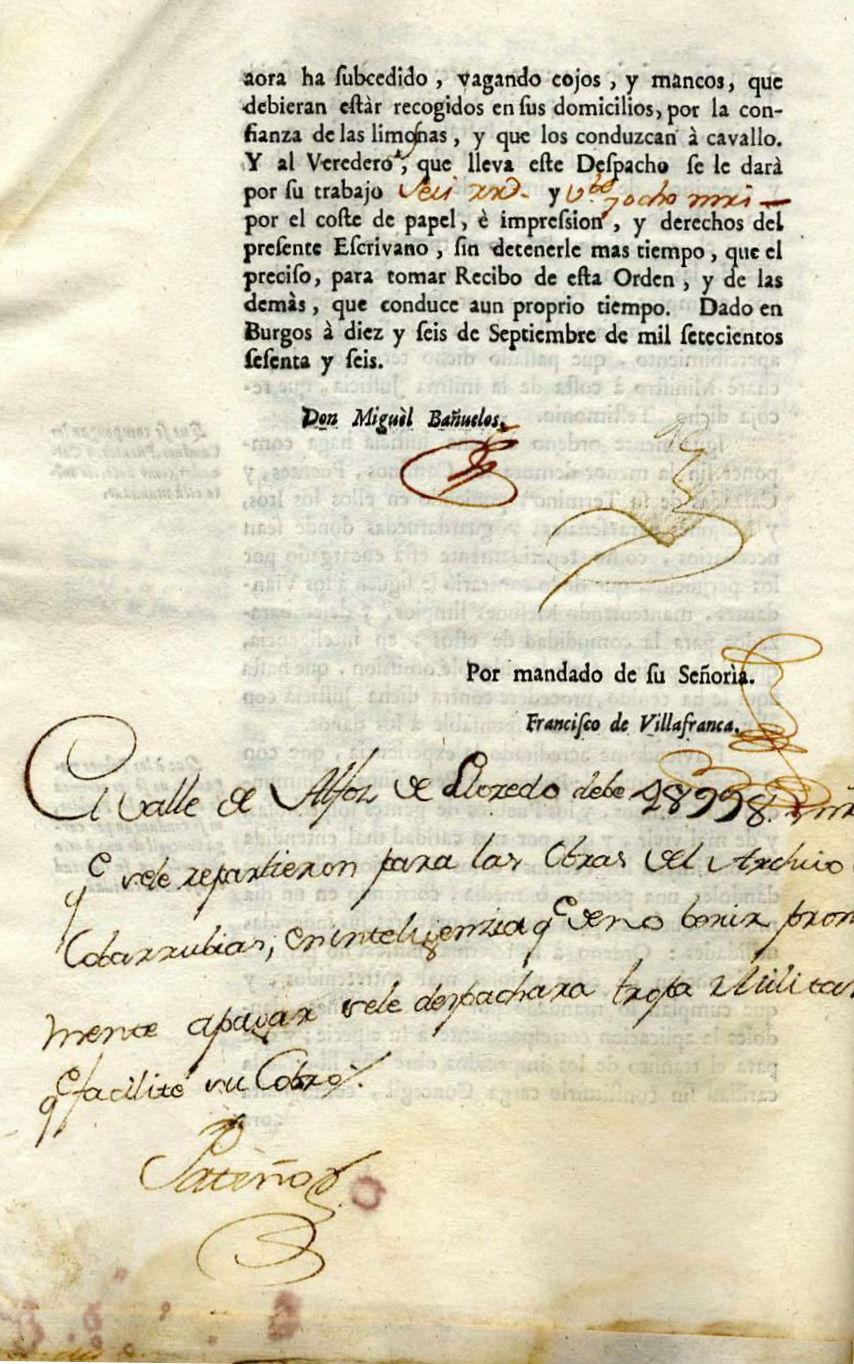 aora ha ſubcedido, vagando cojos, y mancos, que
debieran eſtàr recogidos en sus domicilios, por la con-
fianza de las limoſnas, y que los conduzcan à cavallo.
Y al Veredero, que lleva eſte Deſpacho se le darà
por su trabajo Seis rrs. y vte. y ocho mrs
por el coſte de papel, è impreſsion, y derechos del
preſente Eſcrivano, ſin detenerle mas tiempo, que el
preciſo, para tomar Recibo de eſta Orden, y de las
demàs, que conduce aun proprio tiempo. Dado en
Burgos à diez y ſeis de Septiembre de mil ſetecientos
ſeſenta y ſeis.
Don Miguèl Bañuelos.
Por mandado de ſu Señorìa.
Franciſco de Villafranca.
El valle de Alfoz de Lloredo debe 18998 mr
qe sele repartieron para las Obras del Archivo
Cobarrubias, en inteligenzia qe de no benir pron
mente apagar sele despachara tropa Militar
qe facilite su Cobro.
Patiño